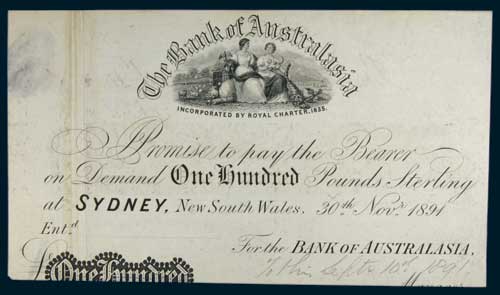 The Bank of Australasia
INCORPORATED BY ROYAL CHARTER, 1835.
Promise to pay the Bearer
on Demand One Hundred Pounds Sterling
at SYDNEY, New South Wales. 30th Novr. 1891
Entd.
For the BANK OF AUSTRALASIA,
Septr 10th 1891
£ One Hundred
Manager